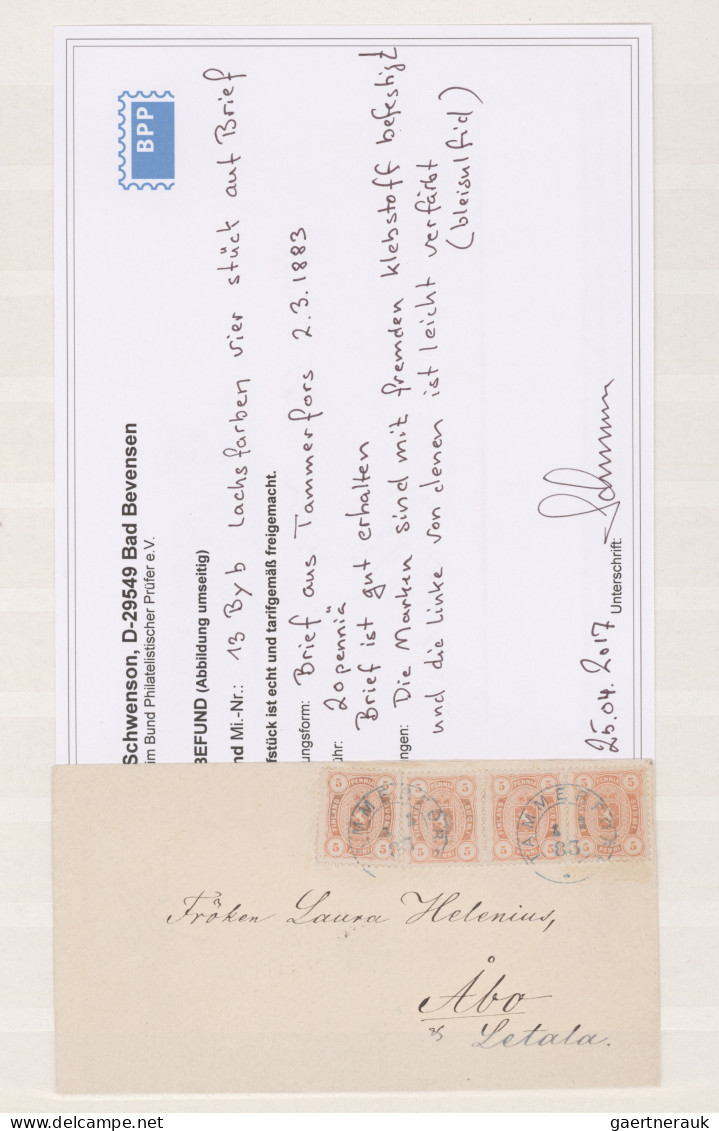 BPP
Schwenson, D-29549 Bad Bevensen
im Bund Philatelistischer Prüfer e.V.
BEFUND (Abbildung umseitig)
nd Mi.-Nr.: 13 Byb Lachsfarben vier stück auf Brief
fstück ist echt und tarifgemäß freigemacht.
ungsform: Brief aus Tammerfors 2.3.1883
ühr: 20 penniä
Brief ist gut erhalten
ungen: Die Marken sind mit fremden Klebstoff befestigt
und die linke von denen ist leicht verfärbt
(bleisulfid)
25.04.2017 Unterschrift:
5 PENNIÄ 5
5 5
TAMMERFORS
83
Fröken Laura Helenius,
Åbo
Letala.
gaertnerauk